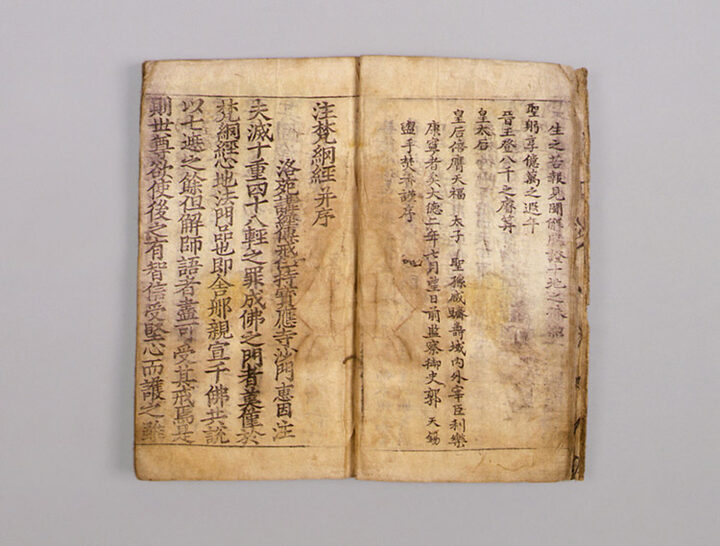 生之苦報見聞解脫證十地之
聖躬享億萬之遐年
晉王登八千之曆筭
皇太后
皇后倍膺天福 太子 聖孫咸躋壽域內外宰臣利樂
康寧者矣大德二年六月望日前監察御史郭 天錫
盥手焚香謹序
注梵網經并序
洛苑菩薩傳戒住持寶應寺沙門惠因注
夫滅十重四十八輕之罪成佛之門者莫僅於
梵網經心地法門品也即舍那親宣千佛共說
以七遮之餘但解師語者盡可受其戒焉是
則世尊欲使後之有智信受堅心而護之